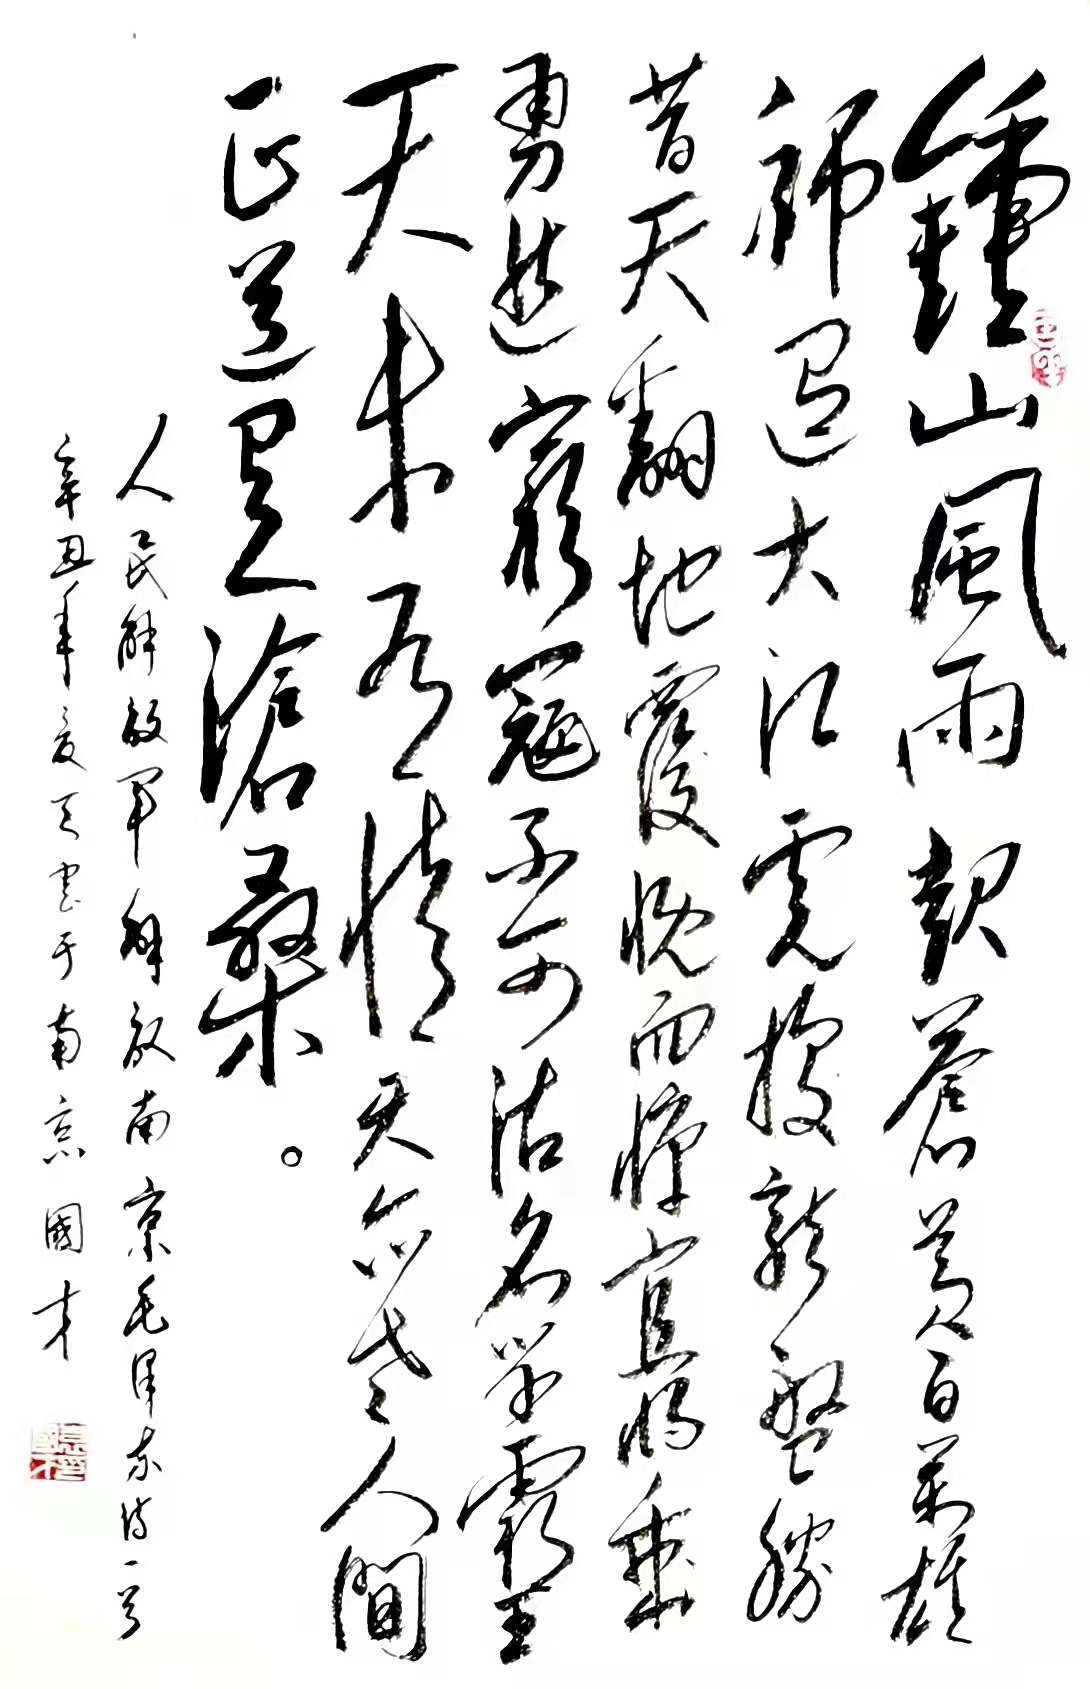 鍾山風雨起蒼黄百萬雄
師過大江虎據龍盤今勝
昔天翻地覆慨而慷宜將剩
勇追窮寇不可沽名學霸王
天若有情天亦老人間
正道是滄桑。
人民解放軍解放南京毛澤东詩一首
辛丑年夏天书于南京國才